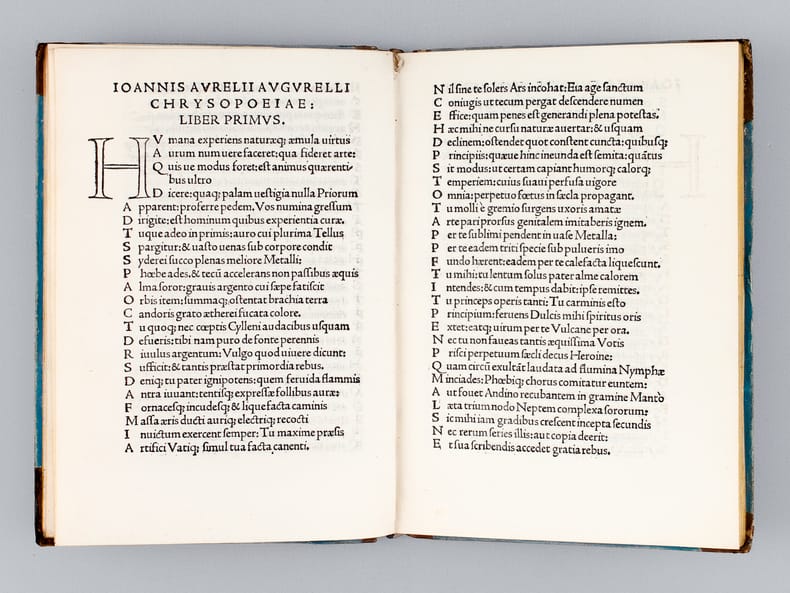 IOANNIS AVRELII AVGVRELLI
CHRYSOPOEIAE:
LIBER PRIMVS.
HVmana experiens naturæq; æmula uirtus
Aurum num uere faceret: qua fideret arte:
Quis ue modus foret: est animus quærenti⸗
bus ultro
Dicere: quaq; palam uestigia nulla Priorum
Apparent: proferre pedem. Vos numina gressum
Dirigite: est hominum quibus experientia curæ.
Tuque adeo in primis: auro cui plurima Tellus
Spargitur: & uasto uenas sub corpore condit
Syderei succo plenas meliore Metalli:
Phœbe ades. & tecū accelerans non passibus æquis
Alma soror: grauis argento cui sæpe fatiscit
Orbis item: summaq; ostentat brachia terra
Candoris grato ætherei fucata colore.
Tu quoq; nec cœptis Cylleni audacibus usquam
Defueris: tibi nam puro de fonte perennis
Riuulus argentum: Vulgo quod uiuere dicunt:
Sufficit: & tantis præstat primordia rebus.
Deniq; tu pater ignipotens: quem feruida flammis
Antra iuuant: tentisq; expressæ follibus auræ:
Fornacesq; incudesq; & liquefacta caminis
Massa æris ducti auriq; electriq; recocti
Inuictum exercent semper: Tu maxime præsis
Artifici Vatiq; simul tua facta canenti.
Nil sine te solers Ars incohat: Eia age sanctum
Coniugis ut tecum pergat descendere numen
Effice: quam penes est generandi plena potestas.
Hæc mihi ne cursu naturæ auertar: & usquam
Declinem: ostendet quot constent cuncta: quibusq;
Principiis: quæue hinc ineunda est semita: quātus
Sit modus: ut certam capiant humorq; calorq;
Temperiem: cuius suaui perfusa uigore
Omnia: perpetuo fœtus in sæcla propagant.
Tu molli è gremio surgens uxoris amatæ
Arte pari prorsus genitalem imitaberis ignem.
Per te sublimi pendent in uase Metalla:
Per te eadem triti specie sub pulueris imo
Fundo hærent: eadem per te calefacta liquescunt.
Tu mihi: tu lentum solus pater alme calorem
Intendes: & cum tempus dabit: ipse remittes.
Tu princeps operis tanti: Tu carminis esto
Principium: feruens Dulcis mihi spiritus oris
Extet: eatq; uirum per te Vulcane per ora.
Nec tu non faueas tantis æquissima Votis
Prisci perpetuum sæcli decus Heroine:
Quam circū exultāt laudata ad flumina Nymphæ
Minciades: Phœbiq; chorus comitatur euntem:
Aut fouet Andino recubantem in gramine Manto
Læta trium nodo Neptem complexa sororum:
Sic mihi iam gradibus crescent incepta secundis
Nec rerum series illis: aut copia deerit:
Et sua scribendis accedet gratia rebus.